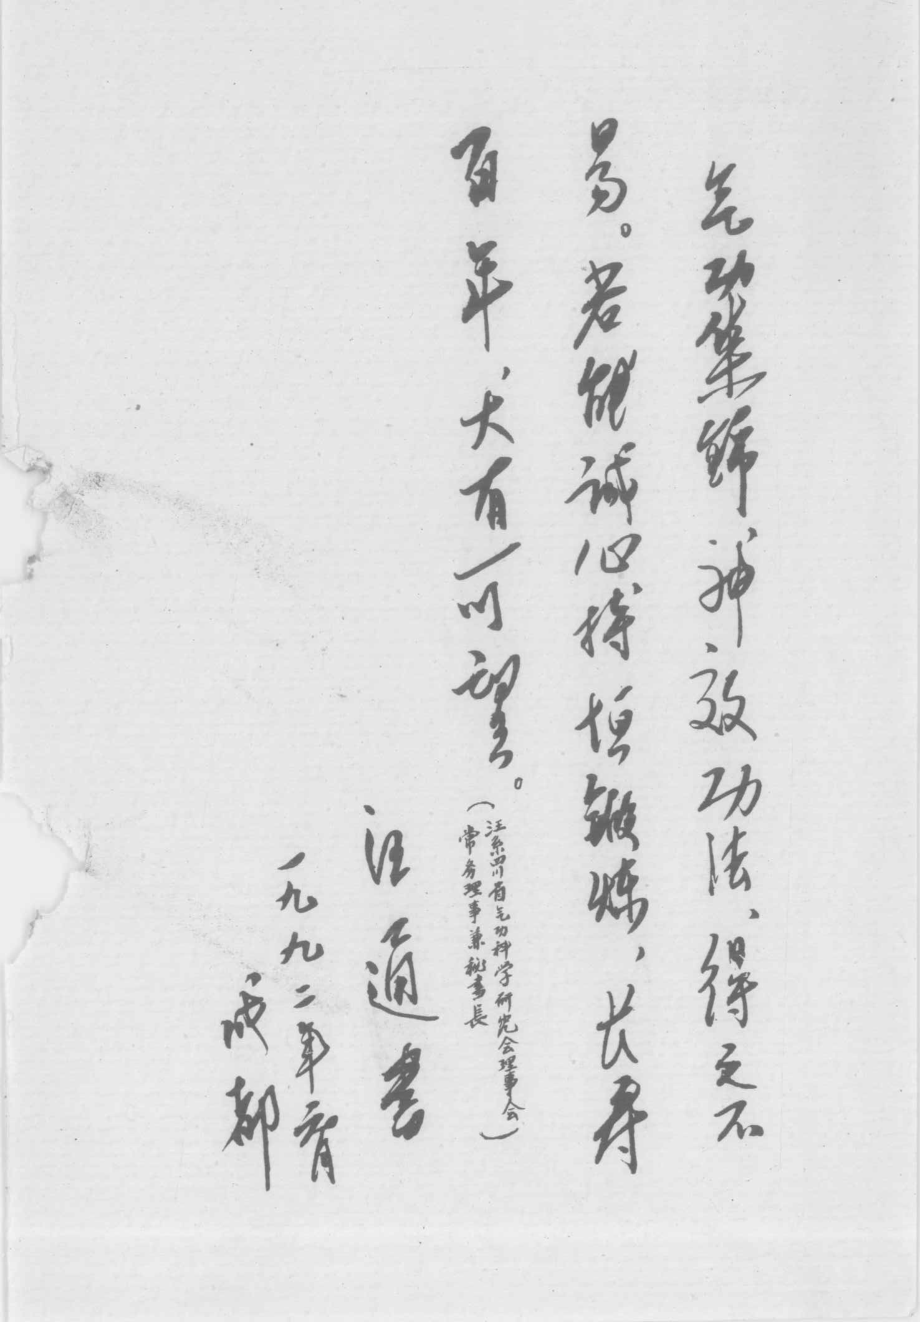 气功集锦神效功法、得之不
易。若能诚心持恒锻炼,长寿
百年、大有可望。
(汪系四川省气功科学研究会理事会
常务理事兼秘书長)
汪通書
一九九二年育
成都